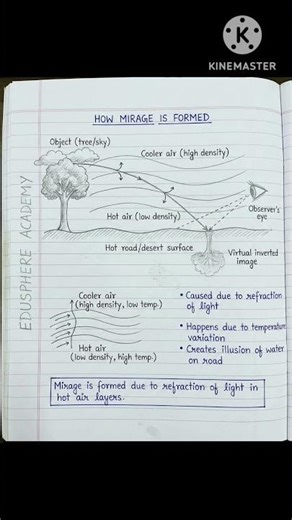 KINEMASTER
HOW MIRAGE IS FORMED
Object (tree/sky)
Cooler air (high density)
Hot air (low density)
Observer's
eye
Hot road/desert surface
Virtual inverted
image
EDUSPHERE ACADEMY
Cooler air
(high density, low temp.)
Hot air
(low density, high temp.)
• Caused due to refraction
of light
• Happens due to temperature
variation
• Creates illusion of water
on road
Mirage is formed due to refraction of light in
hot air layers.